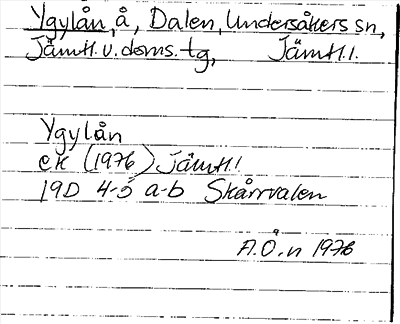 Ygylån, å, Dalen, Undersåkers sn,
Jämtl. v. doms. tg, Jämtl.
Ygylån
ek (1976) Jämtl.
19D 4-5 a-b Skårvalen
A.Ö.n 1976